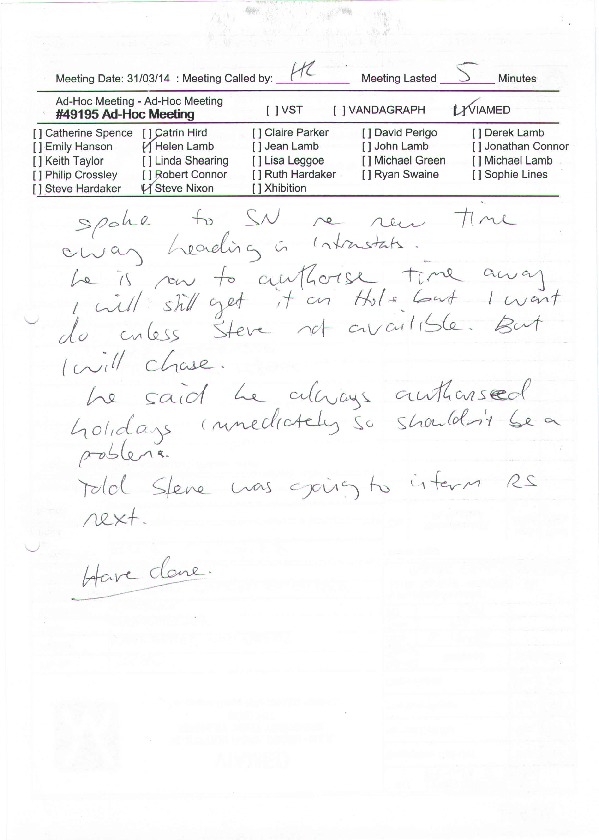 Meeting Date: 31/03/14 : Meeting Called by: HL Meeting Lasted 5 Minutes
Ad-Hoc Meeting - Ad-Hoc Meeting
#49195 Ad-Hoc Meeting [ ] VST [ ] VANDAGRAPH [✓] VIAMED
[ ] Catherine Spence [ ] Catrin Hird [ ] Claire Parker [ ] David Perigo [ ] Derek Lamb
[ ] Emily Hanson [✓] Helen Lamb [ ] Jean Lamb [ ] John Lamb [ ] Jonathan Connor
[ ] Keith Taylor [ ] Linda Shearing [ ] Lisa Leggoe [ ] Michael Green [ ] Michael Lamb
[ ] Philip Crossley [ ] Robert Connor [ ] Ruth Hardaker [ ] Ryan Swaine [ ] Sophie Lines
[ ] Steve Hardaker [✓] Steve Nixon [ ] Xhibition
spoke to SN re new time
away heading in Intrastats.
he is now to authorise time away
I will still get it on Hols but I wont
do unless Steve not availible. But
I will chase.
he said he always authorised
holidays immediately so shouldn't be a
problem.
Told Steve was going to inform RS
next.
Have done.